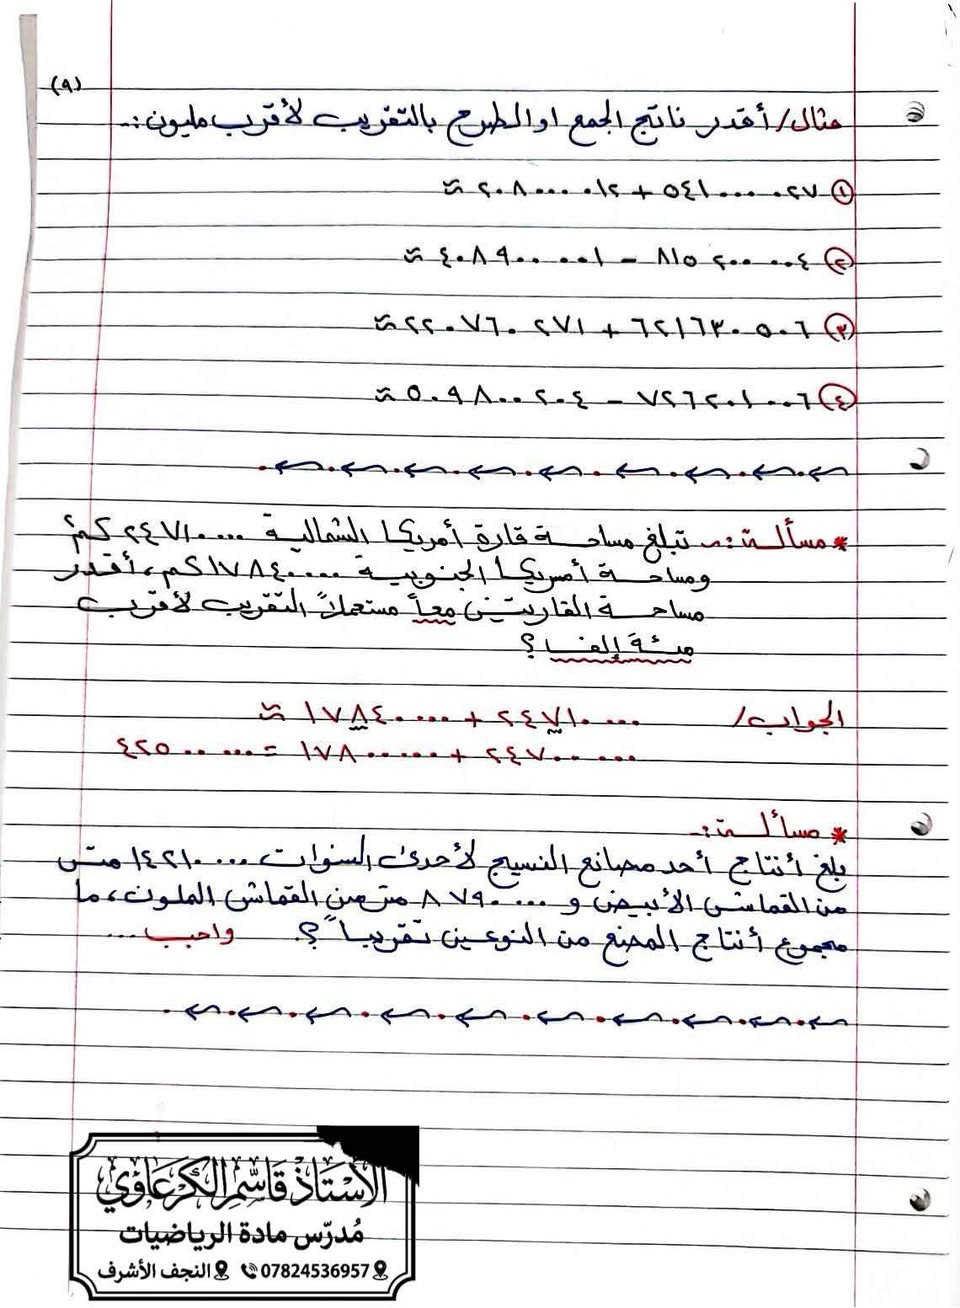 (٩)
مثال/ أقدر ناتج الجمع او الطرح بالتقريب لأقرب مليون :-
① ٥٤١٠٠٠٠٢٧ + ٢٠٨٠٠٠٠١٢ ≈
② ٨١٥٢٠٠٠٠٤ - ٤٠٨٩٠٠٠٠١ ≈
③ ٦٢١٦٣٠٥٠٦ + ٢٢٠٧٦٠٢٧١ ≈
④ ٧٢٦٢٠١٠٠٦ - ٥٠٩٨٠٠٢٠٤ ≈
* مسألة :- تبلغ مساحة قارة أمريكا الشمالية ٢٤٧١٠٠٠٠ كم²
ومساحة أمريكا الجنوبية ١٧٨٤٠٠٠٠ كم، أقدر
مساحة القارتين معاً مستعملاً التقريب لأقرب
مئة إلف ؟
الجواب/ ٢٤٧١٠٠٠٠ + ١٧٨٤٠٠٠٠ ≈
٢٤٧٠٠٠٠٠ + ١٧٨٠٠٠٠٠ = ٤٢٥٠٠٠٠٠
* مسألة :-
بلغ أنتاج أحد مصانع النسيج لأحدى السنوات ١٤٢١٠٠٠٠ متر
من القماش الأبيض و ٨٧٩٠٠٠٠ متر من القماش الملون، ما
مجموع أنتاج المصنع من النوعين تقريباً ؟. واجب ...
الأستاذ قاسم الكرعاوي
مُدرّس مادة الرياضيات
07824536957 النجف الأشرف